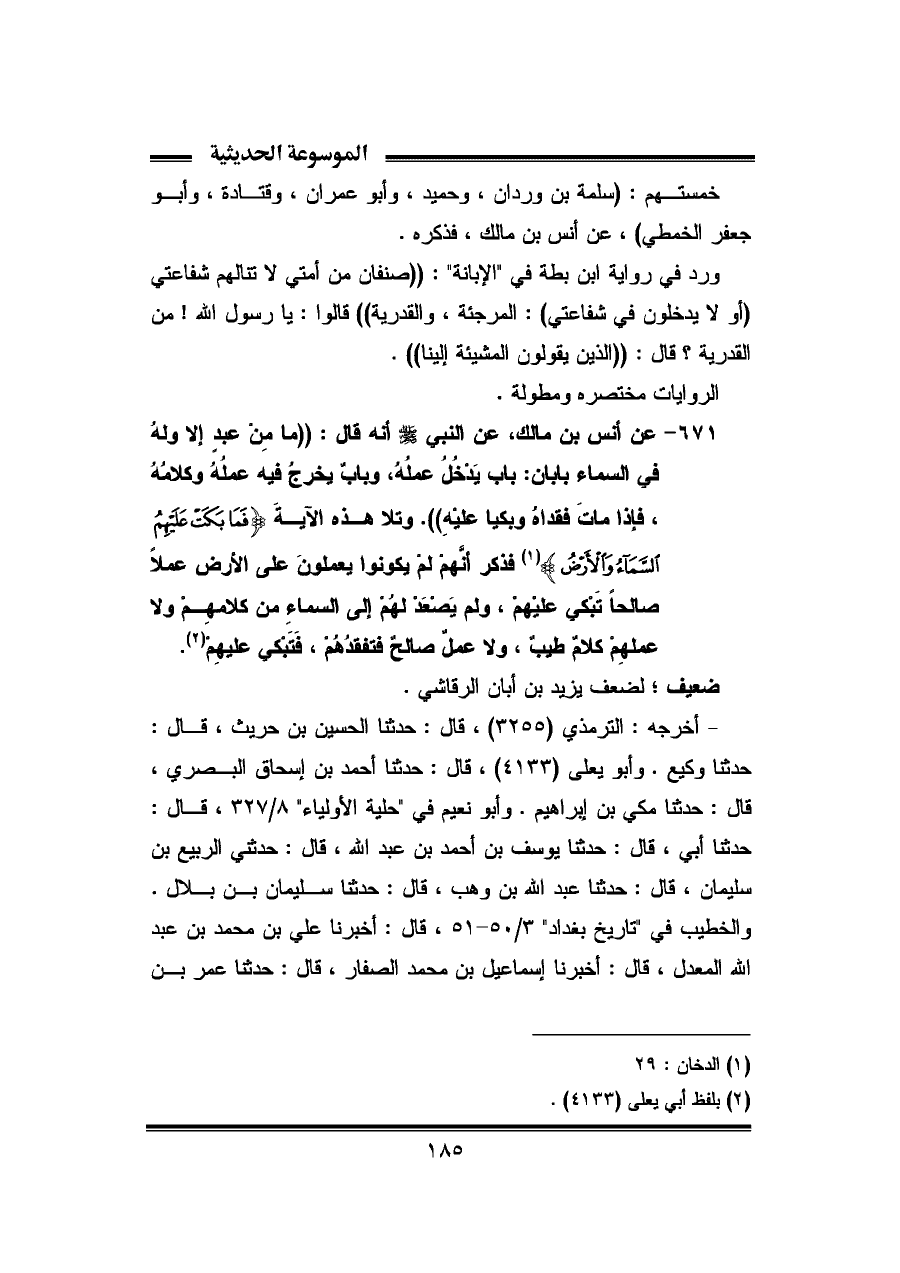 الموسوعة الحديثية
خمستـــهم : (سلمة بن وردان ، وحميد ، وأبو عمران ، وقتـــادة ، وأبـــو
جعفر الخمطي) ، عن أنس بن مالك ، فذكره .
ورد في رواية ابن بطة في "الإبانة" : ((صنفان من أمتي لا تنالهم شفاعتي
(أو لا يدخلون في شفاعتي) : المرجئة ، والقدرية)) قالوا : يا رسول الله ! من
القدرية ؟ قال : ((الذين يقولون المشيئة إلينا)) .
الروايات مختصره ومطولة .
٦٧١- عن أنس بن مالك، عن النبي ﷺ أنه قال : ((ما مِنْ عبدٍ إلا ولهُ
في السماء بابان: باب يَدْخُلُ عملُهُ، وبابٌ يخرجُ فيه عملُهُ وكلامُهُ
، فإذا ماتَ فقداهُ وبكيا عليْهِ)). وتلا هـــذه الآيـــةَ ﴿فَمَا بَكَتْ عَلَيْهِمُ
السَّمَآءُ وَٱلْأَرْضُ﴾(١) فذكر أنَّهمْ لمْ يكونوا يعملونَ على الأرض عملاً
صالحاً تَبْكي عليْهمْ ، ولم يَصْعَدْ لهُمْ إلى السماءِ من كلامهـــمْ ولا
عملهِمْ كلامٌ طيبٌ ، ولا عملٌ صالحٌ فتفقدُهُمْ ، فَتَبْكي عليهِمْ(٢).
ضعيف ؛ لضعف يزيد بن أبان الرقاشي .
- أخرجه : الترمذي (٣٢٥٥) ، قال : حدثنا الحسين بن حريث ، قـــال :
حدثنا وكيع . وأبو يعلى (٤١٣٣) ، قال : حدثنا أحمد بن إسحاق البـــصري ،
قال : حدثنا مكي بن إبراهيم . وأبو نعيم في "حلية الأولياء" ٣٢٧/٨ ، قـــال :
حدثنا أبي ، قال : حدثنا يوسف بن أحمد بن عبد الله ، قال : حدثني الربيع بن
سليمان ، قال : حدثنا عبد الله بن وهب ، قال : حدثنا ســـليمان بـــن بـــلال .
والخطيب في "تاريخ بغداد" ٥٠/٣-٥١ ، قال : أخبرنا علي بن محمد بن عبد
الله المعدل ، قال : أخبرنا إسماعيل بن محمد الصفار ، قال : حدثنا عمر بـــن
(١) الدخان : ٢٩
(٢) بلفظ أبي يعلى (٤١٣٣) .
١٨٥